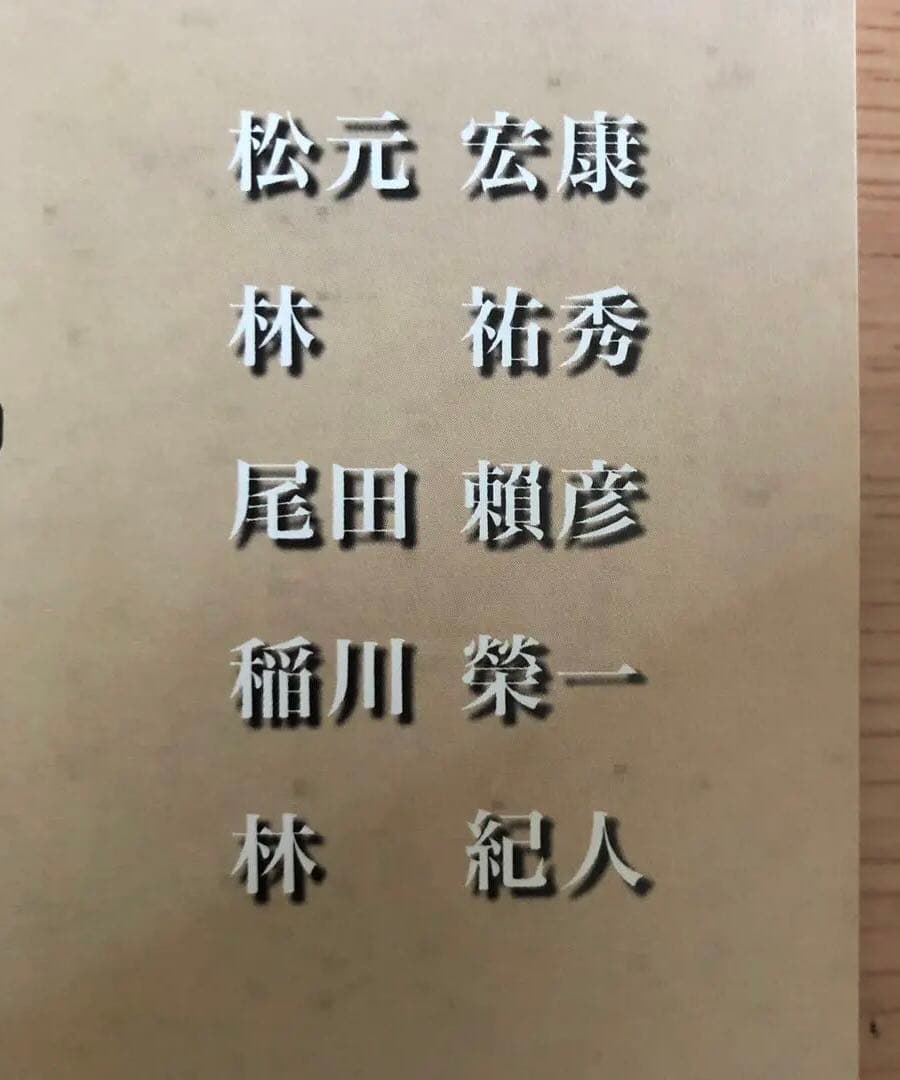 松元 宏康
林 祐秀
尾田 賴彦
稲川 榮一
林 紀人